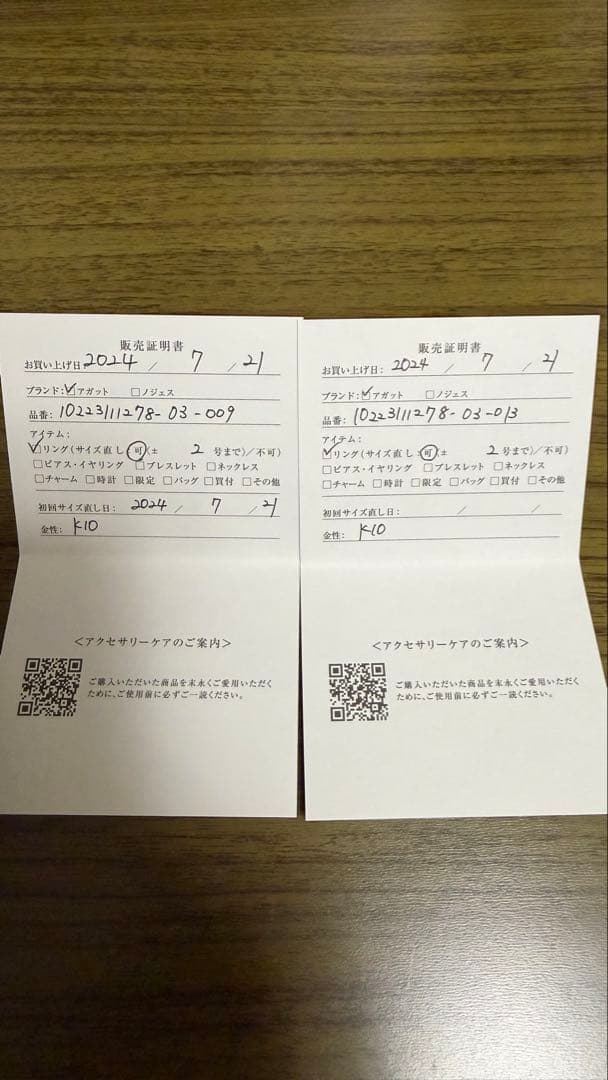 販売証明書
お買い上げ日: 2024 / 7 / 21
ブランド: ☑アガット □ノジェス
品番: 10223111278-03-009
アイテム:
☑リング(サイズ直し:可(± 2 号まで)/不可)
□ピアス・イヤリング □ブレスレット □ネックレス
□チャーム □時計 □限定 □バッグ □買付 □その他
初回サイズ直し日: 2024 / 7 / 21
金性: K10
<アクセサリーケアのご案内>
ご購入いただいた商品を末永くご愛用いただく
ために、ご使用前に必ずご一読ください。
販売証明書
お買い上げ日: 2024 / 7 / 21
ブランド: ☑アガット □ノジェス
品番: 10223111278-03-013
アイテム:
☑リング(サイズ直し:可(± 2 号まで)/不可)
□ピアス・イヤリング □ブレスレット □ネックレス
□チャーム □時計 □限定 □バッグ □買付 □その他
初回サイズ直し日: / /
金性: K10
<アクセサリーケアのご案内>
ご購入いただいた商品を末永くご愛用いただく
ために、ご使用前に必ずご一読ください。